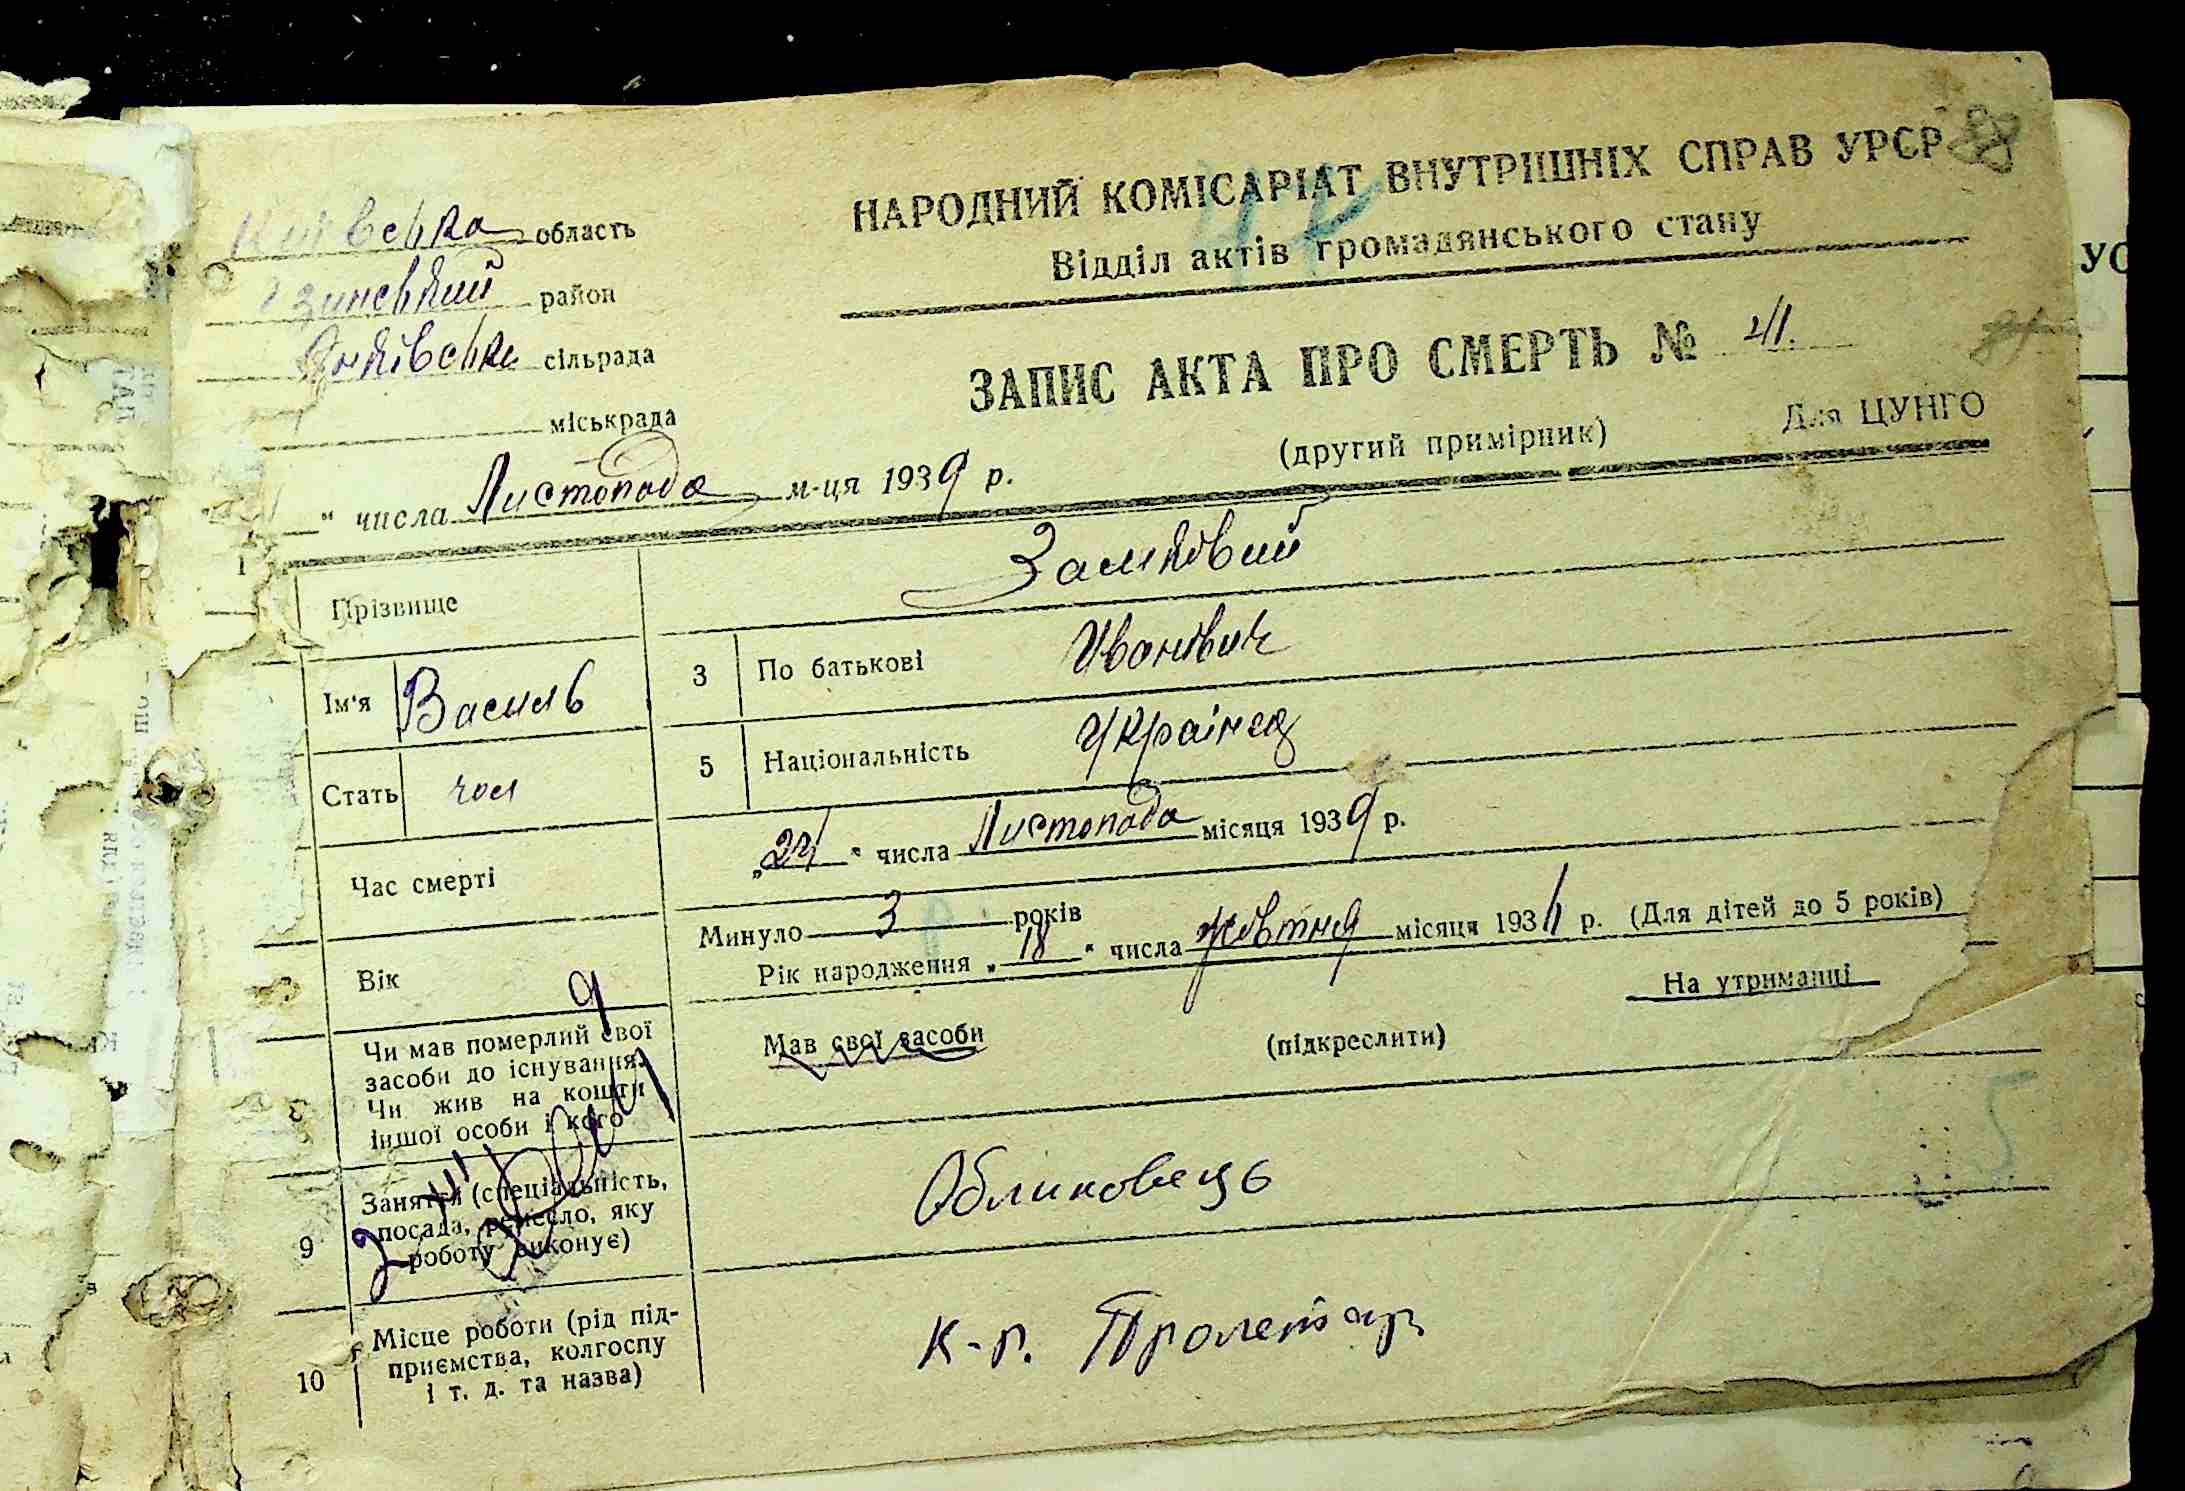 НАРОДНИЙ КОМІСАРІАТ ВНУТРІШНІХ СПРАВ УРСР
Відділ актів громадянського стану
Київська область
район
сільрада
міськрада
ЗАПИС АКТА ПРО СМЕРТЬ № 41.
(другий примірник) Для ЦУНГО
" числа Листопада м-ця 1939 р.
Прізвище Замковий
Ім'я Василь 3 По батькові Иванович
Стать чол 5 Національність Українец
Час смерті „24" числа Листопада місяця 1939 р.
Вік Минуло 3 років
Рік народження „18" числа жовтня місяця 193 р. (Для дітей до 5 років)
Чи мав померлий свої
засоби до існування.
Чи жив на кошти
іншої особи і кого
Мав свої засоби (підкреслити) На утриманці
9 Заняття (спеціальність,
посада, ремесло, яку
роботу виконує)
Обліковець
10 Місце роботи (рід під-
приємства, колгоспу
і т. д. та назва)
К-п. Пролетар